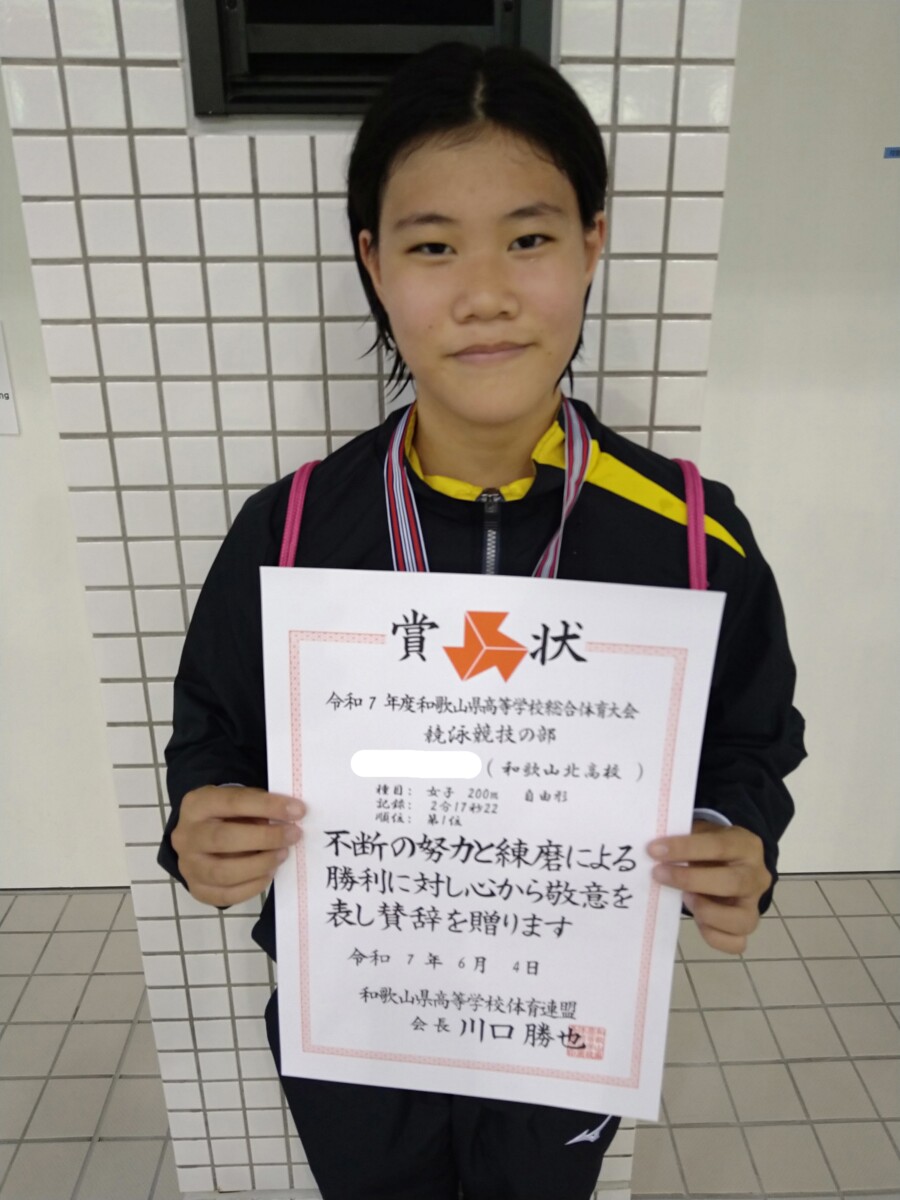 賞状
令和7年度和歌山県高等学校総合体育大会
競泳競技の部
(和歌山北高校)
種目: 女子 200m 自由形
記録: 2分17秒22
順位: 第1位
不断の努力と練磨による
勝利に対し心から敬意を
表し賛辞を贈ります
令和 7年 6月 4日
和歌山県高等学校体育連盟
会長 川口勝也
ng